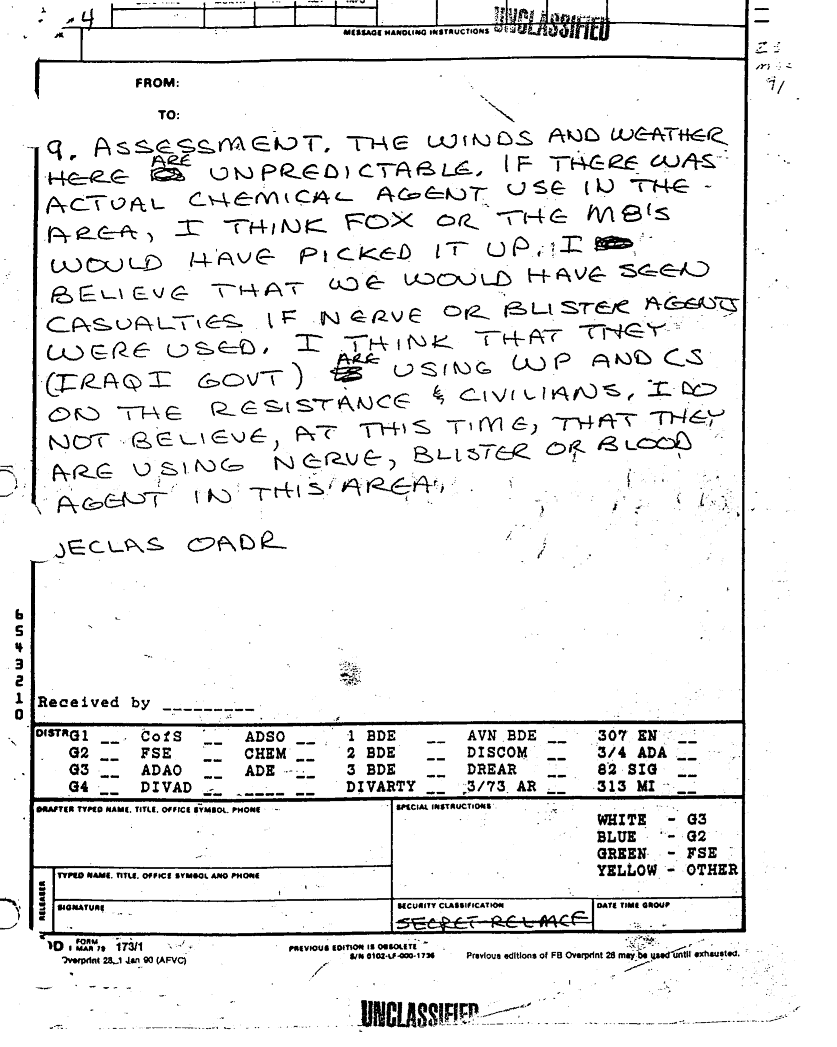 4
UNCLASSIFIED
MESSAGE HANDLING INSTRUCTIONS
23
91
FROM:
TO:
9. ASSESSMENT. THE WINDS AND WEATHER
HERE ARE UNPREDICTABLE. IF THERE WAS
ACTUAL CHEMICAL AGENT USE IN THE
AREA, I THINK FOX OR THE M8'S
WOULD HAVE PICKED IT UP. I
BELIEVE THAT WE WOULD HAVE SEEN
CASUALTIES IF NERVE OR BLISTER AGENTS
WERE USED. I THINK THAT THEY
(IRAQI GOVT) ARE USING WP AND CS
ON THE RESISTANCE & CIVILIANS. I DO
NOT BELIEVE, AT THIS TIME, THAT THEY
ARE USING NERVE, BLISTER OR BLOOD
AGENT IN THIS AREA.
JECLAS OADR
6
5
4
3
2
1
0
Received by _________
DISTR G1 __ CofS __ ADSO __ 1 BDE __ AVN BDE __ 307 EN __
G2 __ FSE __ CHEM __ 2 BDE __ DISCOM __ 3/4 ADA __
G3 __ ADAO __ ADE __ 3 BDE __ DREAR __ 82 SIG __
G4 __ DIVAD __ ____ __ DIVARTY __ 3/73 AR __ 313 MI __
DRAFTER TYPED NAME, TITLE, OFFICE SYMBOL, PHONE
SPECIAL INSTRUCTIONS
WHITE - G3
BLUE - G2
GREEN - FSE
YELLOW - OTHER
RELEASER
TYPED NAME, TITLE, OFFICE SYMBOL AND PHONE
SIGNATURE
SECURITY CLASSIFICATION
SECRET
DATE TIME GROUP
DD FORM 1 MAR 79 173/1
Overprint 28, 1 Jan 90 (AFVC)
PREVIOUS EDITION IS OBSOLETE
S/N 0102-LF-000-1736
Previous editions of FB Overprint 28 may be used until exhausted.
UNCLASSIFIED